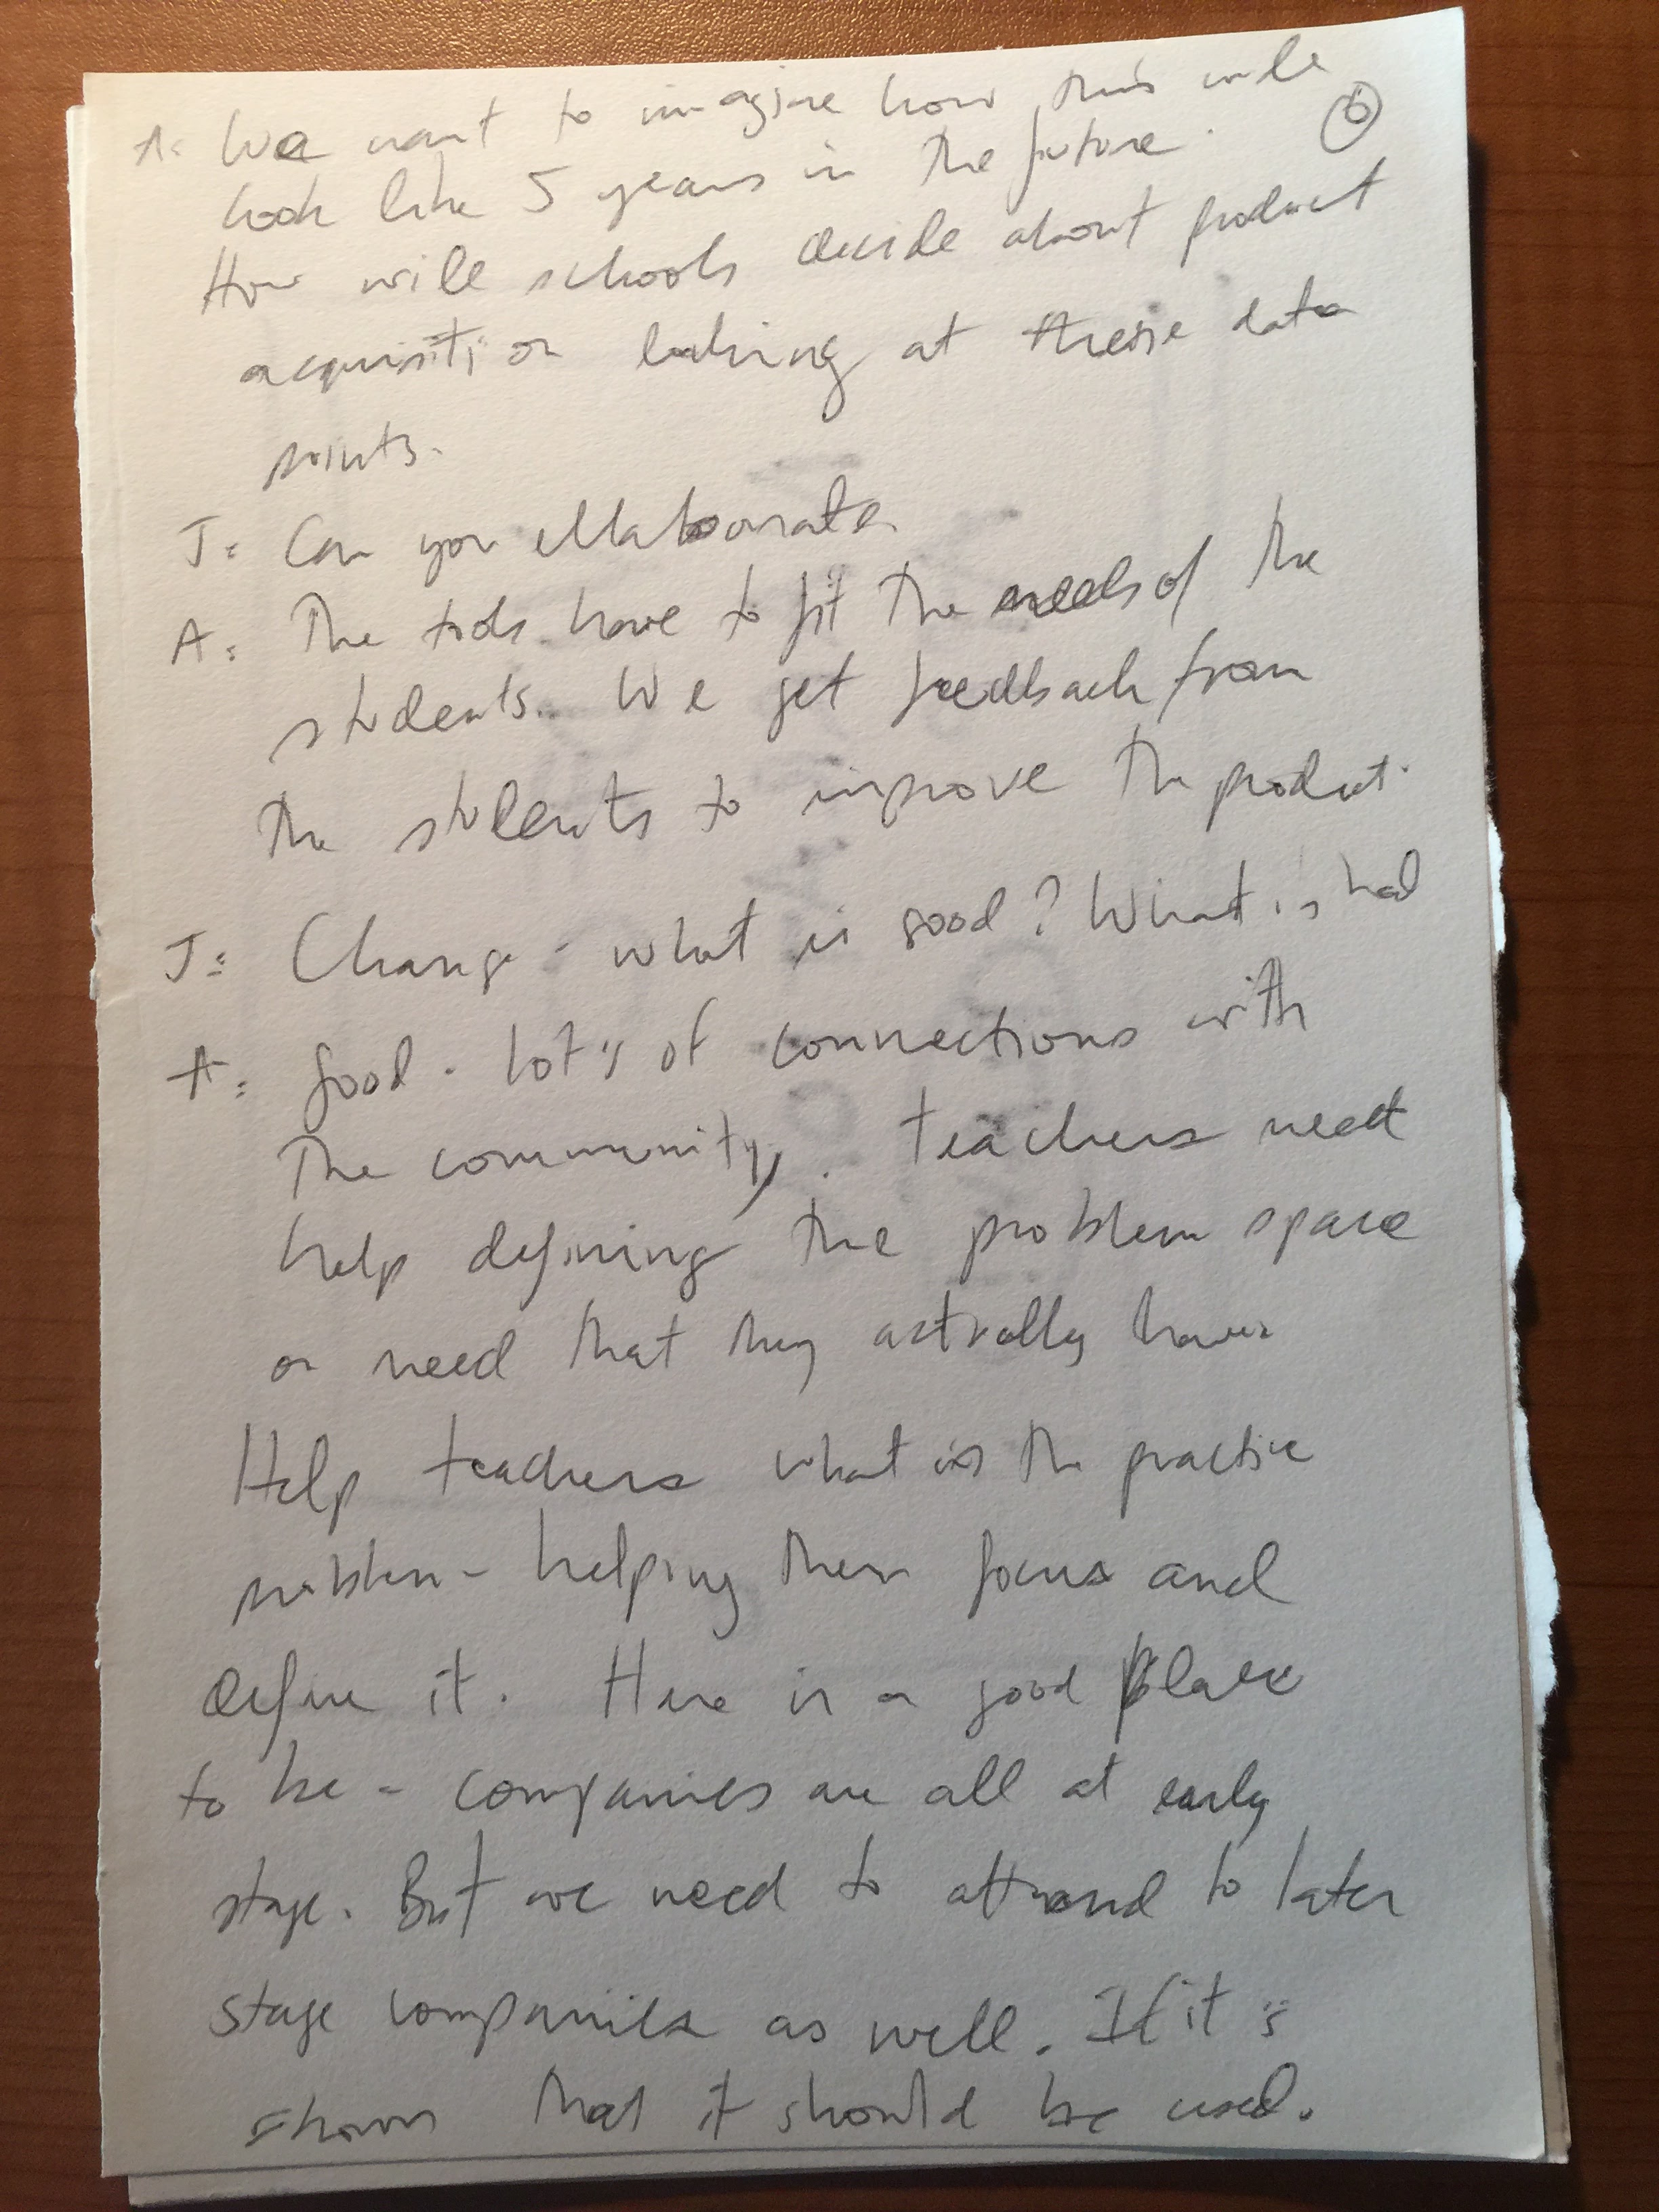 A: We want to imagine how this will
6
look like 5 years in the future.
How will schools decide about product
acquisition looking at these data
points.
J: Can you ellaborate.
A: The tools have to fit the needs of the
students. We get feedback from
the students to improve the product.
J: Change - what is good? What is bad
A: good - lot's of connections with
the community. teachers need
help defining the problem space
or need that they actually have.
Help teachers what is the practice
problem - helping them focus and
define it. Here is a good place
to be - companies are all at early
stage. But we need to attend to later
stage companies as well. If it is
shown that it should be used.